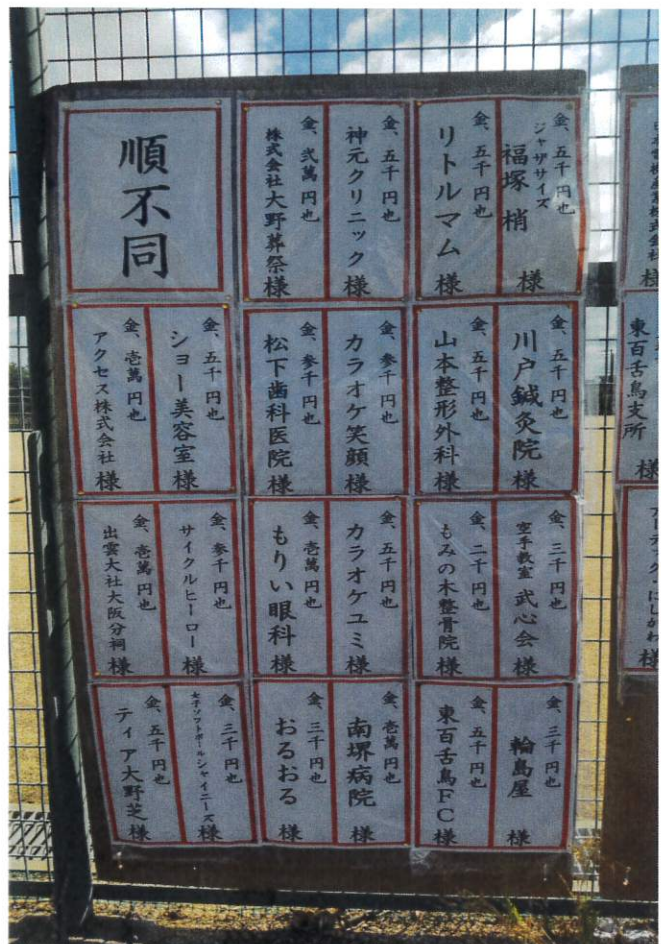 金、五千円也
ジャザサイズ
福塚 梢 様
金、五千円也
リトルマム 様
神元クリニック 様
金、弐萬円也
株式会社大野葬祭 様
順不同
金、五千円也
川戸鍼灸院 様
金、五千円也
山本整形外科 様
金、参千円也
カラオケ笑顔 様
金、参千円也
松下歯科医院 様
金、五千円也
ショー美容室 様
金、壱萬円也
アクセス株式会社 様
金、三千円也
空手教室 武心会 様
金、二千円也
もみの木整骨院 様
金、五千円也
カラオケユミ 様
金、壱萬円也
もりい眼科 様
金、参千円也
サイクルヒーロー 様
金、壱萬円也
出雲大社大阪分祠 様
金、三千円也
輪島屋 様
金、五千円也
東百舌鳥FC 様
金、壱萬円也
南堺病院 様
金、三千円也
おるおる 様
金、三千円也
女子ソフトボールシャイニーズ 様
金、五千円也
ティア大野芝 様
東百舌鳥支所 様
様